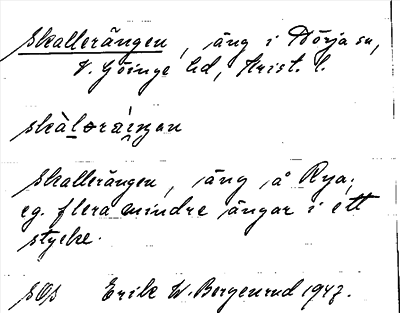 Skallerängen, äng i Nörja sn,
V. Göinge hd, Krist. l.
skàlərä̀ŋən
Skallerängen, äng å Rya;
eg. flera mindre ängar i ett
stycke.
SOS Erik W. Bergenrud 1947.